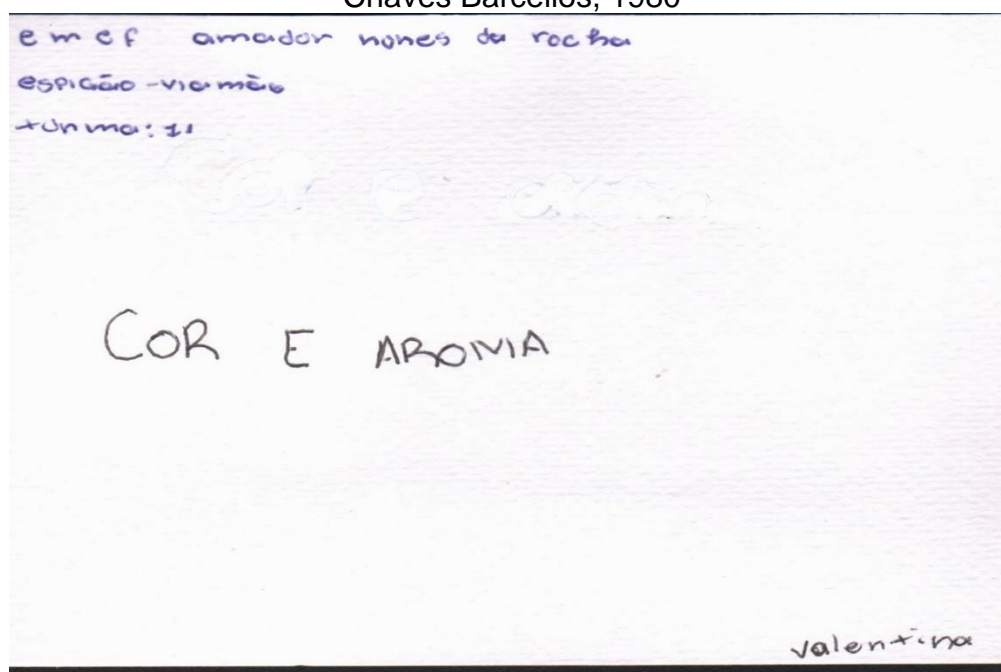 Chaves Barcellos, 1980
emef amador nones da rocha
espigão-viamão
turma: 11
COR E AROMIA
valentina